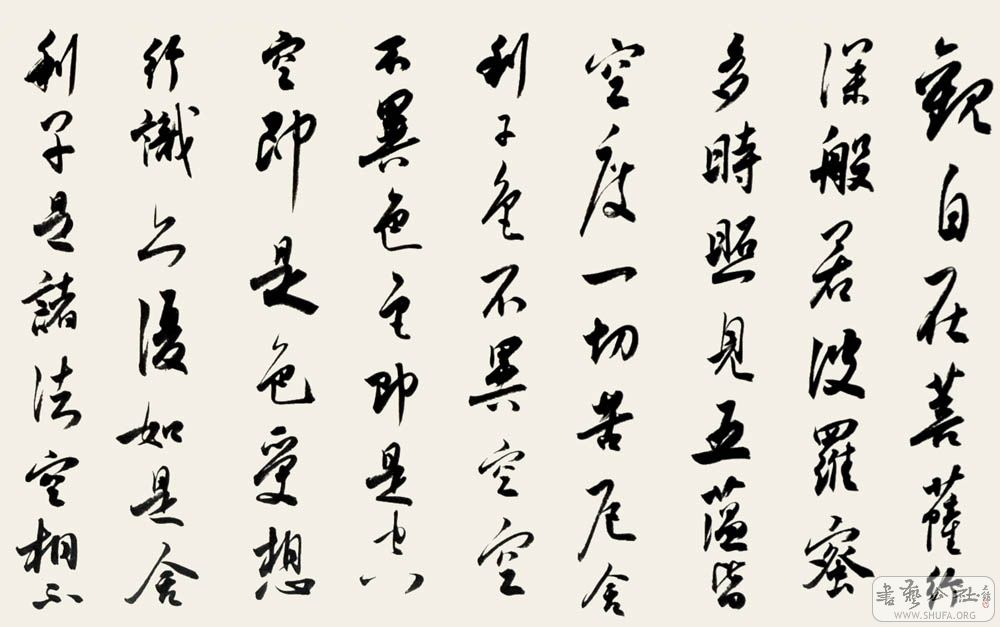 觀自在菩薩行
深般若波羅蜜
多時照見五蘊皆
空度一切苦厄舍
利子色不異空空
不異色色即是空
空即是色受想
行識亦復如是舍
利子是諸法空相不
書藝公社
WWW.SHUFA.ORG